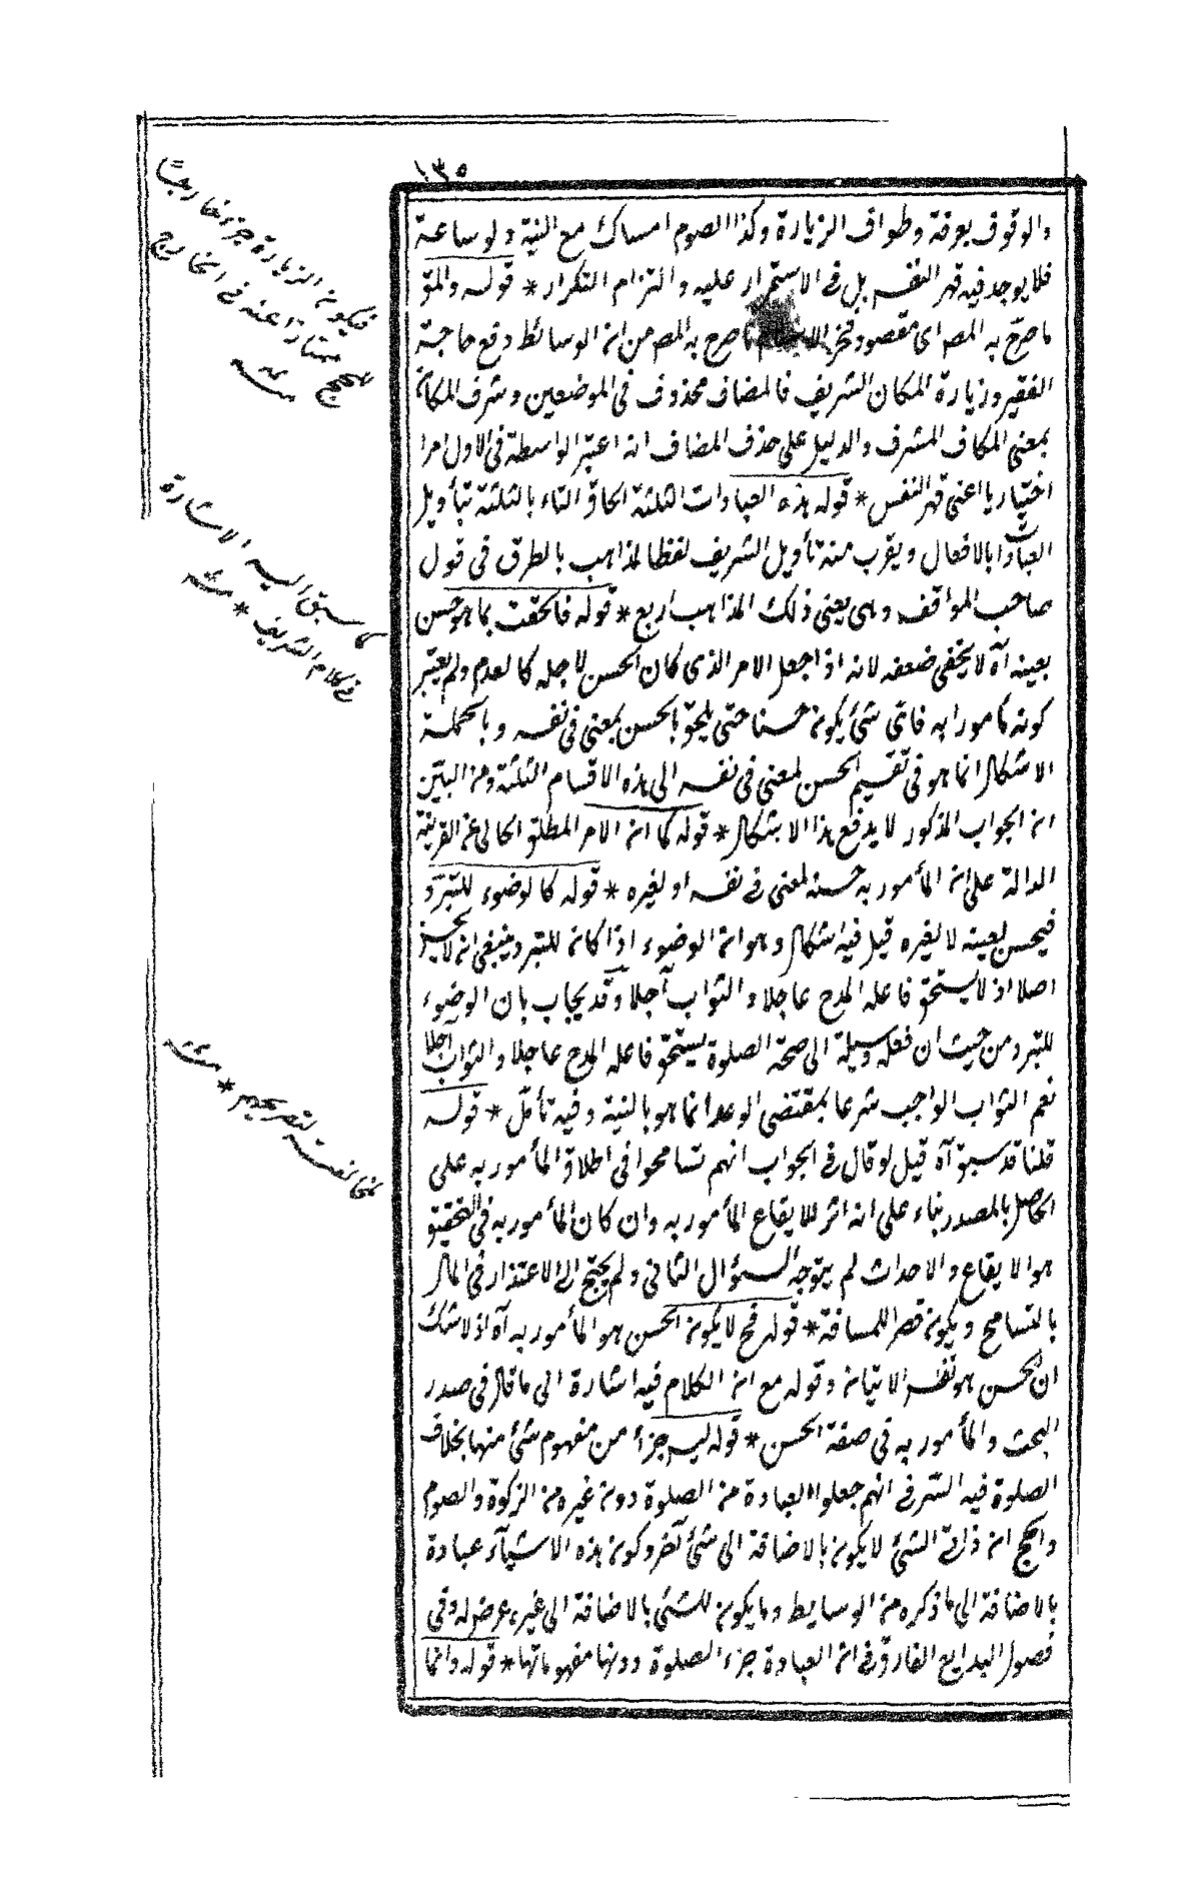 ١٣٥
والوقوف بعرفة وطواف الزيارة وكذا الصوم امساك مع النية ولو ساعة
فلا يوجد فيه قهر النفس بل فى الاستمرار عليه والتزام التكرار * قوله والمق
ما صرح به المص اى مقصود فخر الاسلام ما صرح به المص من ان الوسائط دفع حاجة
الفقير وزيارة المكان الشريف فالمضاف محذوف فى الموضعين وشرف المكان
بمعنى المكان المشرف والدليل على حذف المضاف انه اعتبر الواسطة فى الاول امرا
اختياريا اعنى قهر النفس * قوله هذه العبادات الثلثة الحاق التاء بالثلثة بتأويل
العبادات بالافعال ويقرب منه تأويل الشريف لفظ المذاهب بالطرق فى قول
صاحب المواقف وهى يعنى ذلك المذاهب اربع * قوله فالحقت بما هو حسن
بعينه آه لا يخفى ضعفه لانه اذا جعل الامر الذى كان الحسن لاجله كالعدم ولم يعتبر
كونه مأمورا به فاى شئ يكون حسنا حتى يلحق بالحسن بمعنى فى نفسه وبالجملة
الاشكال انما هو فى تقسيم الحسن لمعنى فى نفسه الى هذه الاقسام الثلثة ومن البين
ان الجواب المذكور لا يدفع هذا الاشكال * قوله كما ان الامر المطلق الخالى عن القرينة
الدالة على ان المأمور به حسنه لمعنى فى نفسه او لغيره * قوله كالوضوء للتبرد
فيحسن لعينه لا لغيره قيل فيه اشكال وهو ان الوضوء اذا كان للتبرد ينبغى ان لا يحسن
اصلا اذ لا يستحق فاعله المدح عاجلا والثواب آجلا وقد يجاب بان الوضوء
للتبرد من حيث ان فعله وسيلة الى صحة الصلوة يستحق فاعله المدح عاجلا والثواب آجلا
نعم الثواب الواجب شرعا بمقتضى الوعد انما هو بالنية وفيه تأمل * قوله
قلنا قد سبق آه قيل لو قال فى الجواب انهم تسامحوا فى اطلاق المأمور به على
الحاصل بالمصدر بناء على انه اثر للايقاع المأمور به وان كان المأمور به فى التحقيق
هو الايقاع والاحداث لم يتوجه السؤال الثانى ولم يحتج الى الاعتذار فى المآل
بالتسامح ويكون قصر المسافة * قوله فح لا يكون الحسن هو المأمور به آه اذ لا شك
ان الحسن هو نفس الاتيان وقوله مع ان الكلام فيه اشارة الى ما قال فى صدر
البحث والمأمور به فى صفة الحسن * قوله ليس جزأ من مفهوم شئ منها بخلاف
الصلوة فيه السر فى انهم جعلوا العبادة من الصلوة دون غيره من الزكوة والصوم
والحج ان ذات الشئ لا يكون بالاضافة الى شئ آخر وكون هذه الاشياء عبادة
بالاضافة الى ما ذكره من الوسايط وما يكون للشئ بالاضافة الى غيره عرض له وفى
فصول البدايع الفارق فى ان العبادة جزء الصلوة دونها مفهوماتها * قوله وانما
فيكون الزيارة جزء خارجيا
للحج ممتازا عنه فى الخارج
منه
كما سبق اليه الاشارة
فى كلام الشريف * منه